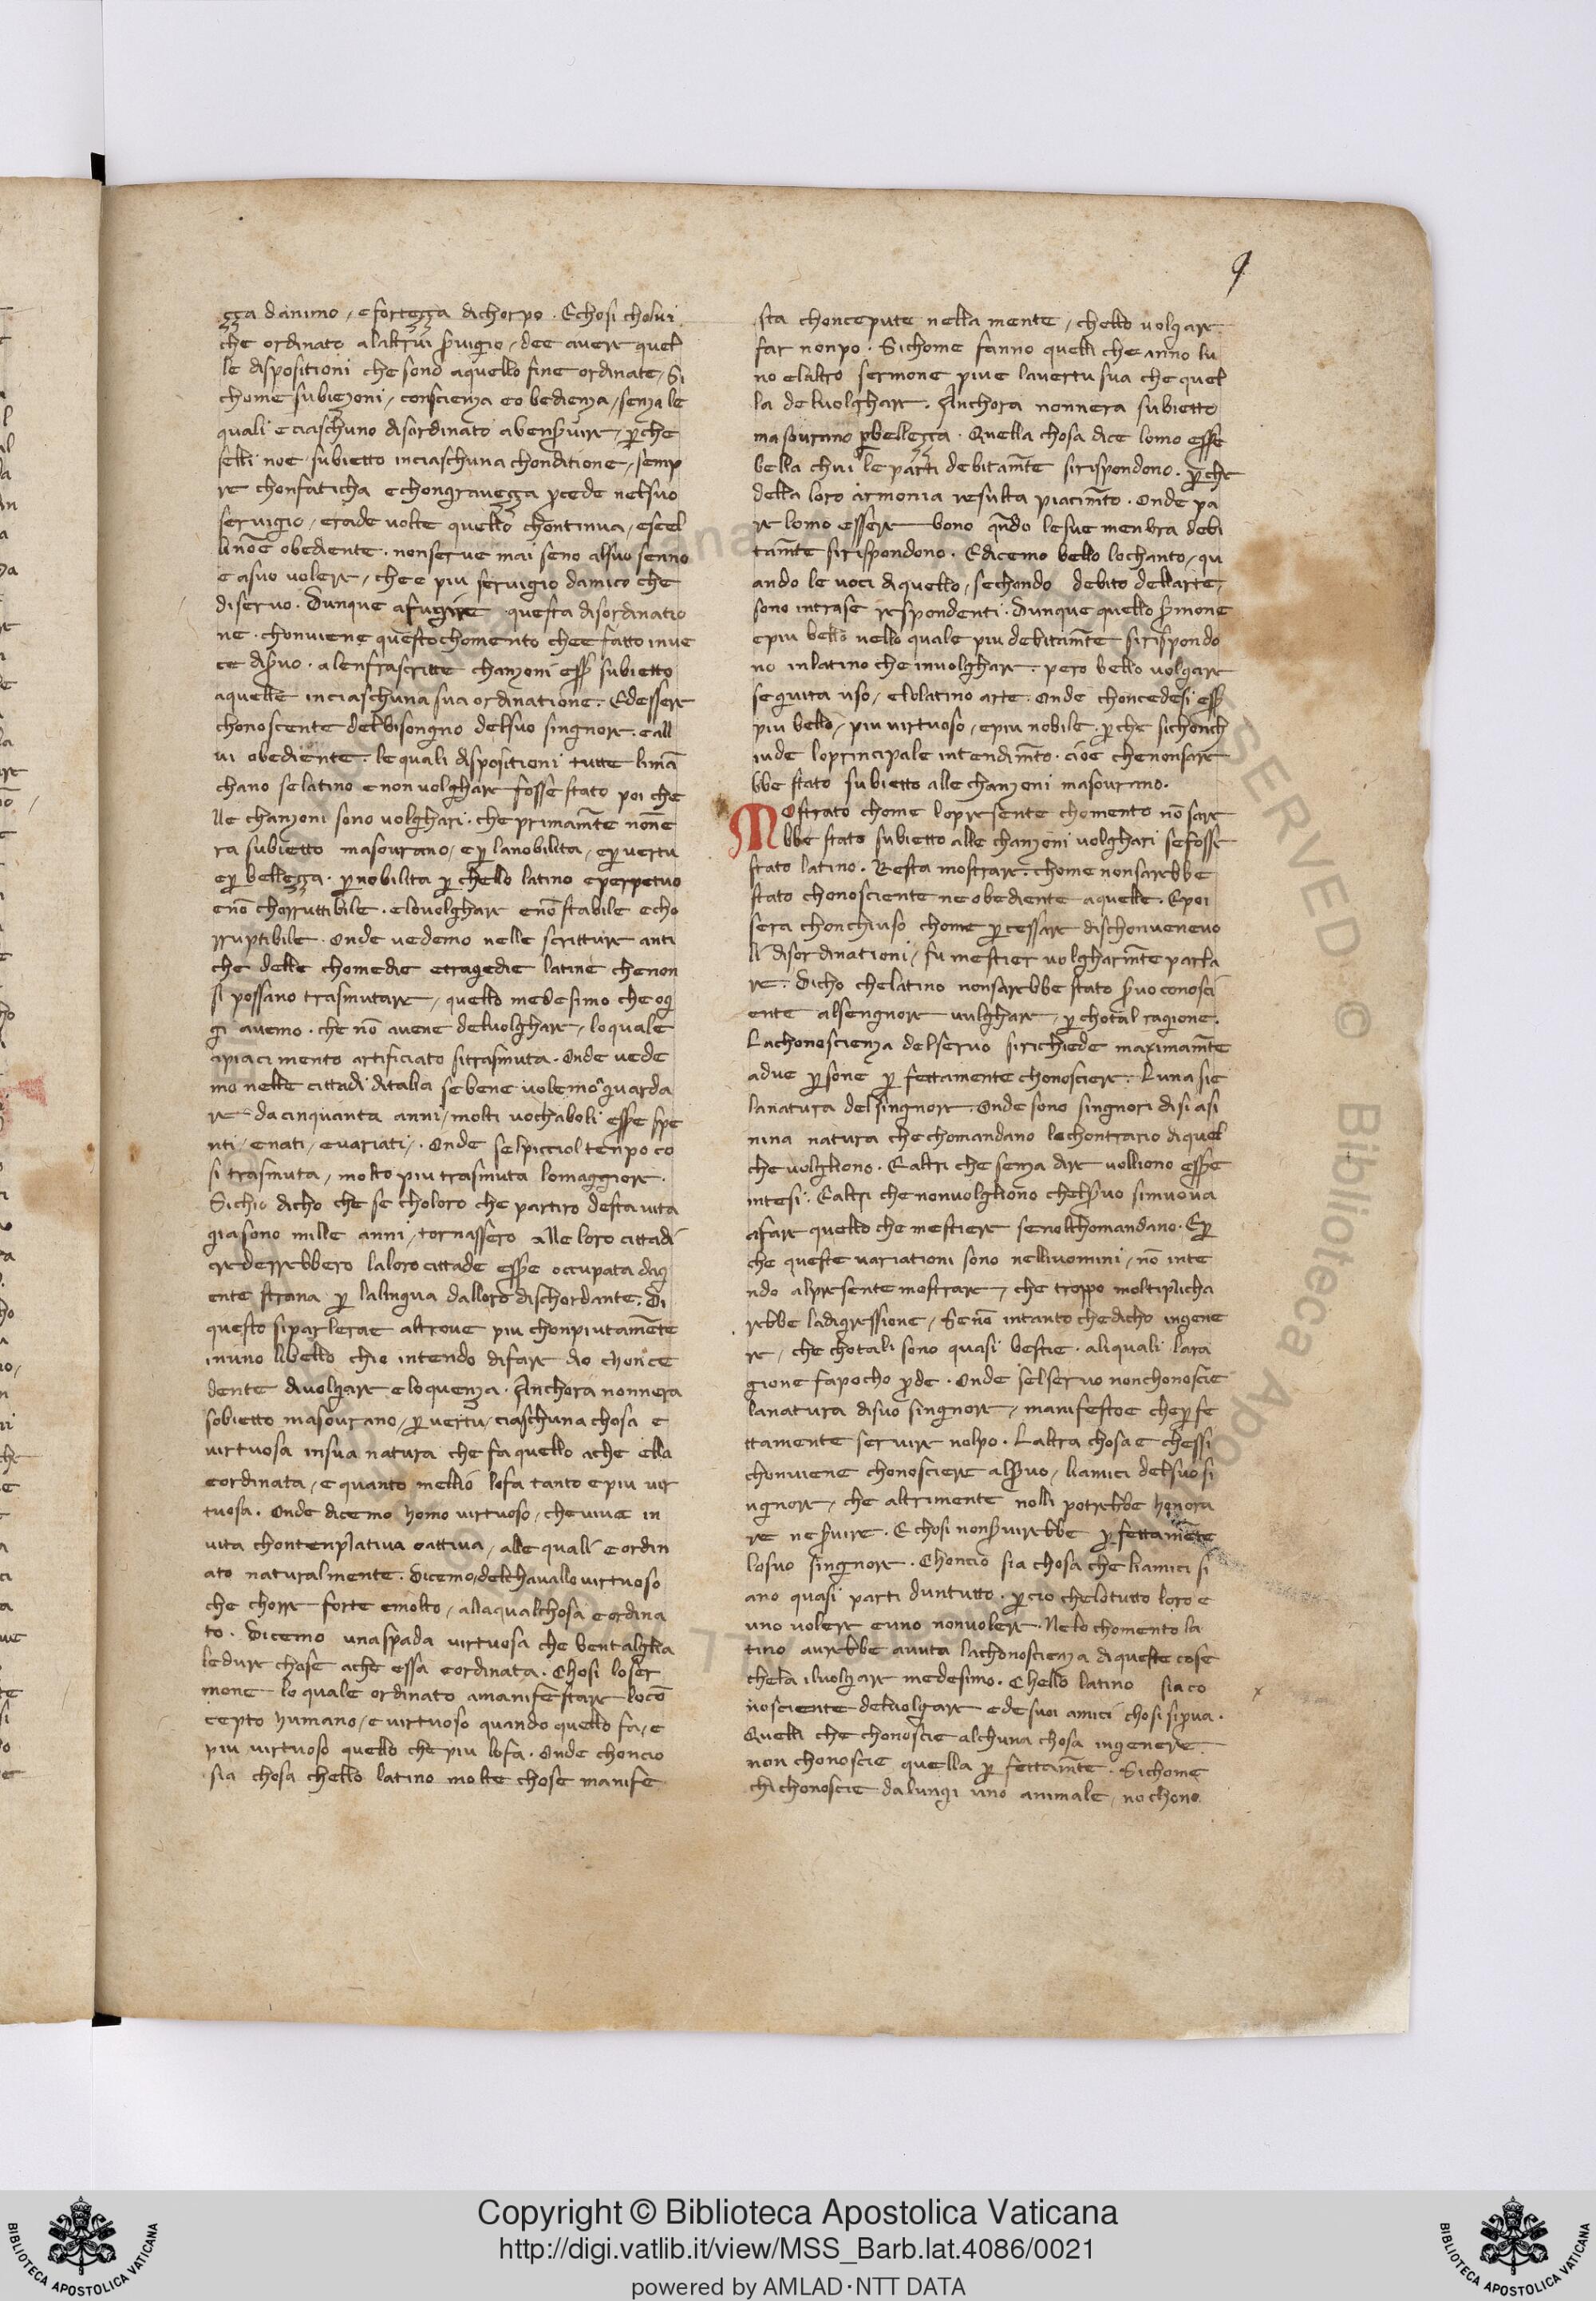 9
çça danimo / e forteçça dichorpo · Echosi cholui
che ordinato alaltrui s̄uigio / dee auere quel
le dispositioni che sono aquello fine ordinate / Si
chome subiezioni / conscienza eo bedienza / senza le
quali e ciaschuno disordinato abens̄uire / ꝑche
selli noe subietto inciaschuna chonditione / semp
re chonfaticha echongraueçça ꝓcede nelsuo
seruigio / erade uolte quello chontinua / esel
li nōe obediente · nonserue mai seno alsuo senno
e asuo uolere / chee piu seruigio damico che
diseruo · Dunque afugire questa disordinatio
ne · chonuiene questo chomento chee fatto inue
ce dis̄uo · alenfrascritte chanzoni ess̄ subietto
aquelle inciaschuna sua ordinatione · Edessere
chonoscente delbisongno delsuo singnore · e all
ui obediente · le quali dispositioni tutte limā
chano selatino enon uolghare fosse stato poi che
lle chanzoni sono uolghari · che primam̄te nonne
ra subietto masourano / e ꝑ lanobilita / e ꝑ uertu
e ꝑ belleçça · ꝑ nobilita ꝑ chello latino eperpetuo
enō chorruttibile · elouolghare enō stabile echo
rruptibile · Onde uedemo nelle scritture anti
che delle chomedie etragedie latine chenon
si possano trasmutare / quello medesimo che og
gi auemo · che nō auene deluolghare / loquale
apiacimento artificiato sitrasmuta · Onde uede
mo nelle cittadi ditalia sebene uolemo guarda
re da cinquanta anni / molti uochaboli ess̄e spe
nti / enati / euariati / · Onde selpicciol tenpo co
si trasmuta / molto piu trasmuta lomaggiore ·
Sichio dicho che se choloro che partiro desta uita
giasono mille anni / tornassero alle loro cittadi
crederrebbero laloro cittade ess̄e occupata dag
ente strana ꝑ lalingua dalloro dischordante · Di
questo siparlerae altroue piu chonpiutamēte
inuno libello chio intendo difare dio chonce
dente diuolgare eloquenza · Anchora nonnera
sobietto masourano / ꝑ uertu / ciaschuna chosa e
uirtuosa insua natura che fa quello ache ella
eordinata / e quanto mellio lofa tanto epiu uir
tuosa · Onde dicemo homo uirtuoso / cheuiue in
uita chontenplatiua oattiua / alle quali e ordin
ato naturalmente · Dicemo / delchauallo uirtuoso
che chorre forte emolto / allaqualchosa e ordina
to · Dicemo unaspada uirtuosa che bentalghia
ledure chose ache essa eordinata · Chosi loser
mone lo quale ordinato amanifestare locō
cepto humano / e uirtuoso quando quello fa / e
piu uirtuoso quello che piu lofa · Onde choncio
sia chosa chello latino molte chose manife
sta choncepute nella mente / chello uolgare
far nonpo · Sichome fanno quelli che anno lu
no elaltro sermone piue lauertu sua che quel
la deluolghare · Anchora nonnera subietto
masourano ꝑbelleçça · Quella chosa dice lomo esse
bella chui le parti debitam̄te sirispondono · ꝑche
della loro armonia resulta piacim̄to · Onde pa
re lomo essere bono qn̄do lesue menbra debi
tam̄te sirispondono · Edicemo bello lochanto / qu
ando le uoci diquello / sechondo debito dellarte /
sono intrase respondenti · Dunque quello s̄mone
epiu bello nello quale piu debitam̄te sirispondo
no inlatino che inuolghare · pero bello uolgare
sequita uso / elolatino arte · Onde choncedesi ess̄
piu bello / piu uirtuoso / epiu nobile · ꝑche sichonch
iude loprincipale intendim̄to · cioe chenonsare
bbe stato subietto alle chanzoni masourano ·
Mostrato chome lopresente chomento nō sare
bbe stato subietto alle chanzoni uolghari sefosse
stato latino · Resta mostrare · chome nonsarebbe
stato chonosciente neobediente aquelle · Epoi
sera chonchiuso chome ꝑcessare dischonueneuo
li disordinationi / fu mestier uolgharm̄te parla
re · Dicho chelatino nonsarebbe stato s̄uo conosci
ente alsengnore uulghare / ꝑ chotal ragione ·
Lachonoscienza delseruo sirichiede maximam̄te
adue ꝑsone ꝑ fettamente chonosciere · Luna sie
lanatura delsingnore · Onde sono singnori disi asi
nina natura che chomandano lo chontrario diquel
che uolghono · Ealtri che senza dire uolliono ess̄e
intesi · Ealtri che nonuolghono chels̄uo simuoua
afare quello che mestiere senolchomandano · Eꝑ
che queste uariationi sono nelliuomini / nō inte
ndo alpresente mostrare / che troppo moltiplicha
rebbe ladigressione / Senō intanto chedicho ingene
re / che chotali sono quasi bestie · aliquali lara
gione fapocho ꝓde · Onde selseruo nonchonoscie
lanatura disuo singnore / manifestoe cheꝑfe
ttamente seruire nolpo · Laltra chosa e chessi
chonuiene chonosciere als̄uo / liamici delsuo si
ngnore / che altrimente nolli potrebbe honora
re ne s̄uire · Echosi nons̄uirebbe ꝑfettamēte
losuo singnore · Choncio sia chosa che liamici si
ano quasi parti duntutto · ꝑcio chelotutto loro e
uno uolere euno nonuolere · Nelo chomento la
tino aurebbe auuta lachonoscienza diqueste cose
chela iluolgare medesimo · Chello latino sia co
nosciente deluolgare edesuoi amici chosi siꝓua ·
Quelli che chonoscie alchuna chosa ingenere
non chonoscie quella ꝑfettam̄te · Sichome
chi chonoscie dalungi uno animale / no chono
x
Copyright © Biblioteca Apostolica Vaticana
http://digi.vatlib.it/view/MSS_Barb.lat.4086/0021
powered by AMLAD·NTT DATA
BIBLIOTECA APOSTOLICA VATICANA
BIBLIOTECA APOSTOLICA VATICANA